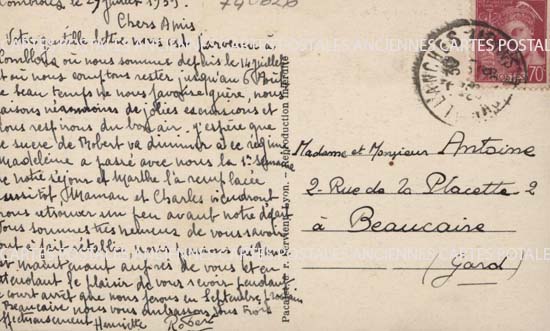 Combloux, le 27 juillet 1939
Chers Amis
Votre gentille lettre nous est parvenue à
Combloux où nous sommes depuis le 14 juillet
et où nous comptons rester jusqu'au 6 Août
Le beau temps ne nous favorise guère, nous
faisons néanmoins de jolies excursions et
nous respirons du bon air. j'espère que
le sucre de Robert va diminuer à ce régime
Madeleine a passé avec nous la 1ère semaine
de notre séjour et Marthe l'a remplacée
aussitôt Maman et Charles viendront
nous retrouver un peu avant notre départ
Nous sommes très heureux de vous savoir
tout à fait rétablie
et maintenant auprès de vous et en
attendant le plaisir de vous revoir pendant
le court arrêt que nous ferons en Septembre prochain
à Beaucaire nous vous embrassons tous trois
affectueusement Henriette Robert
Lyon. — Reproduction interdite
70
POSTES
SALLANCHES
Madame et Monsieur Antoine
2 - Rue de la Placette - 2
à Beaucaire
(Gard)
CARTES POSTALES ANCIENNES CARTES POSTALES